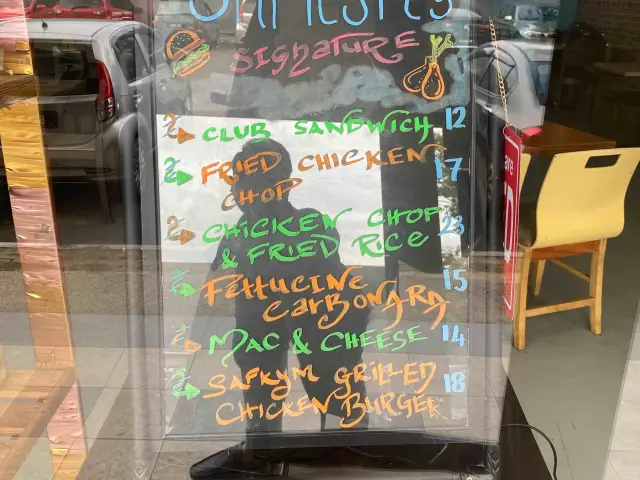 SIGNATURE
CLUB SANDWICH 12
FRIED CHICKEN 17
CHOP
CHICKEN CHOP 23
& FRIED RICE
FETTUCINE 15
CARBONARA
MAC & CHEESE 14
SAFKYM GRILLED 18
CHICKEN BURGER
are